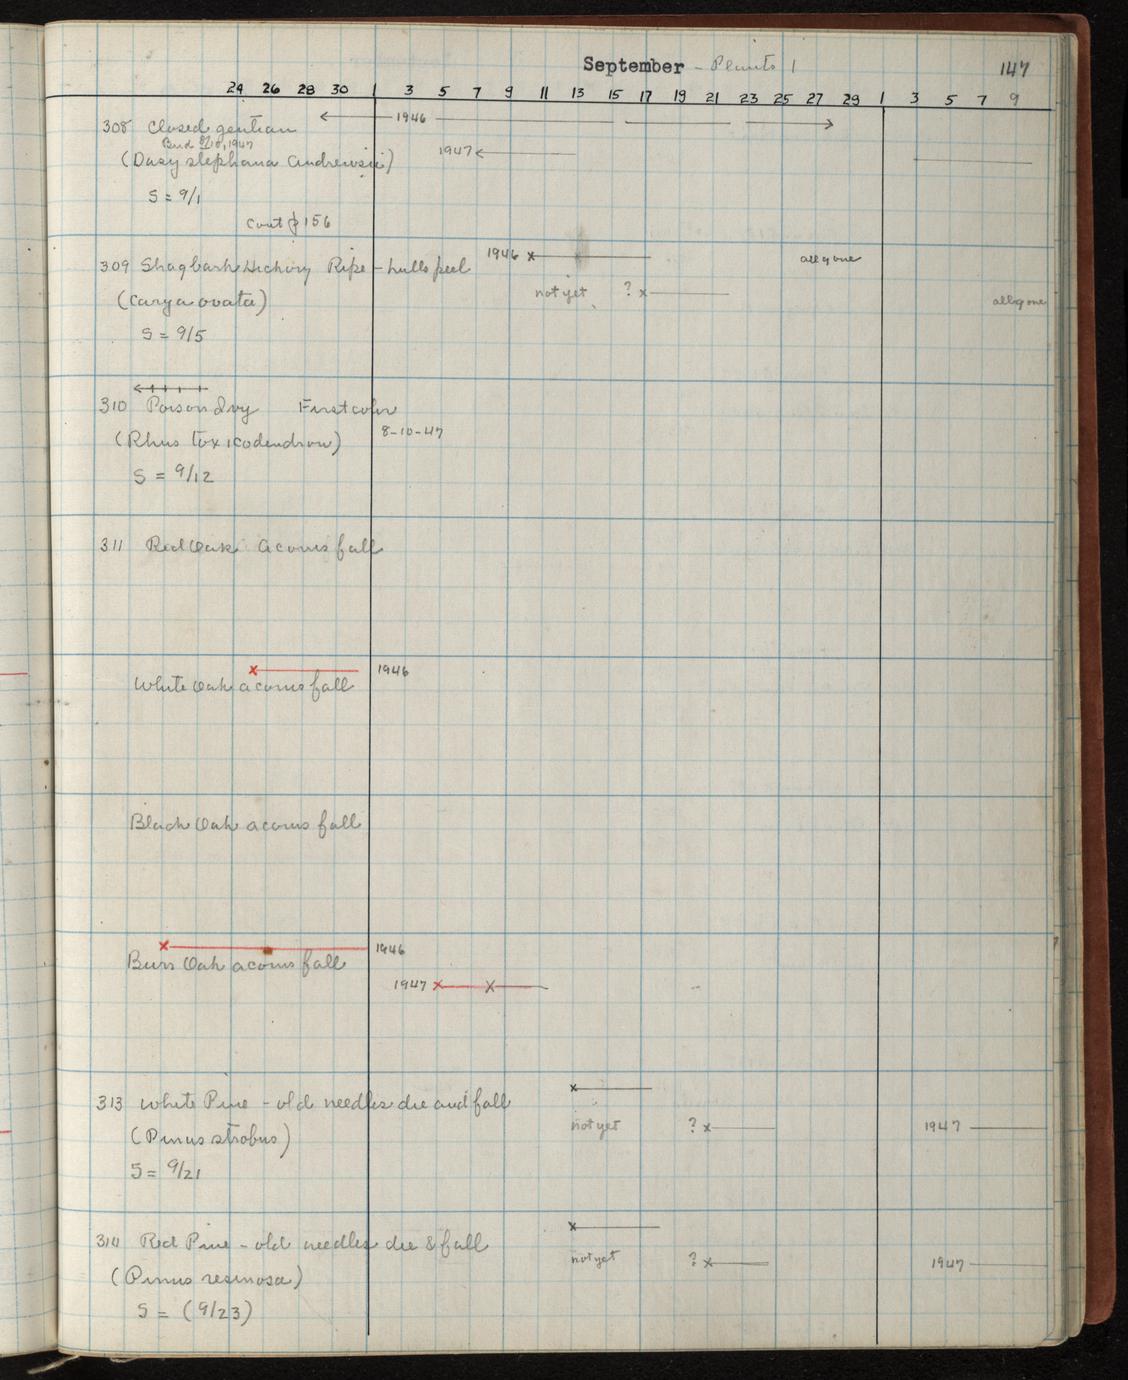 September - Plants 1 147
24 26 28 30 1 3 5 7 9 11 13 15 17 19 21 23 25 27 29 1 3 5 7 9
308 Closed gentian 1946
Bud 8/18, 1947
(Dasystephana andrewsii) 1947
S = 9/1
Cont p 156
309 Shagbark Hickory Ripe - hulls peel 1946 x all gone
(Carya ovata) not yet ? x all gone
S = 9/5
310 Poison Ivy First color
(Rhus toxicodendron) 8-10-47
S = 9/12
311 Red Oak acorns fall
x 1946
White Oak acorns fall
Black Oak acorns fall
x 1946
Burr Oak acorns fall
1947 x x
x
313 White Pine - old needles die and fall
not yet ? x 1947
(Pinus strobus)
S = 9/21
x
314 Red Pine - old needles die & fall
not yet ? x 1947
(Pinus resinosa)
S = (9/23)